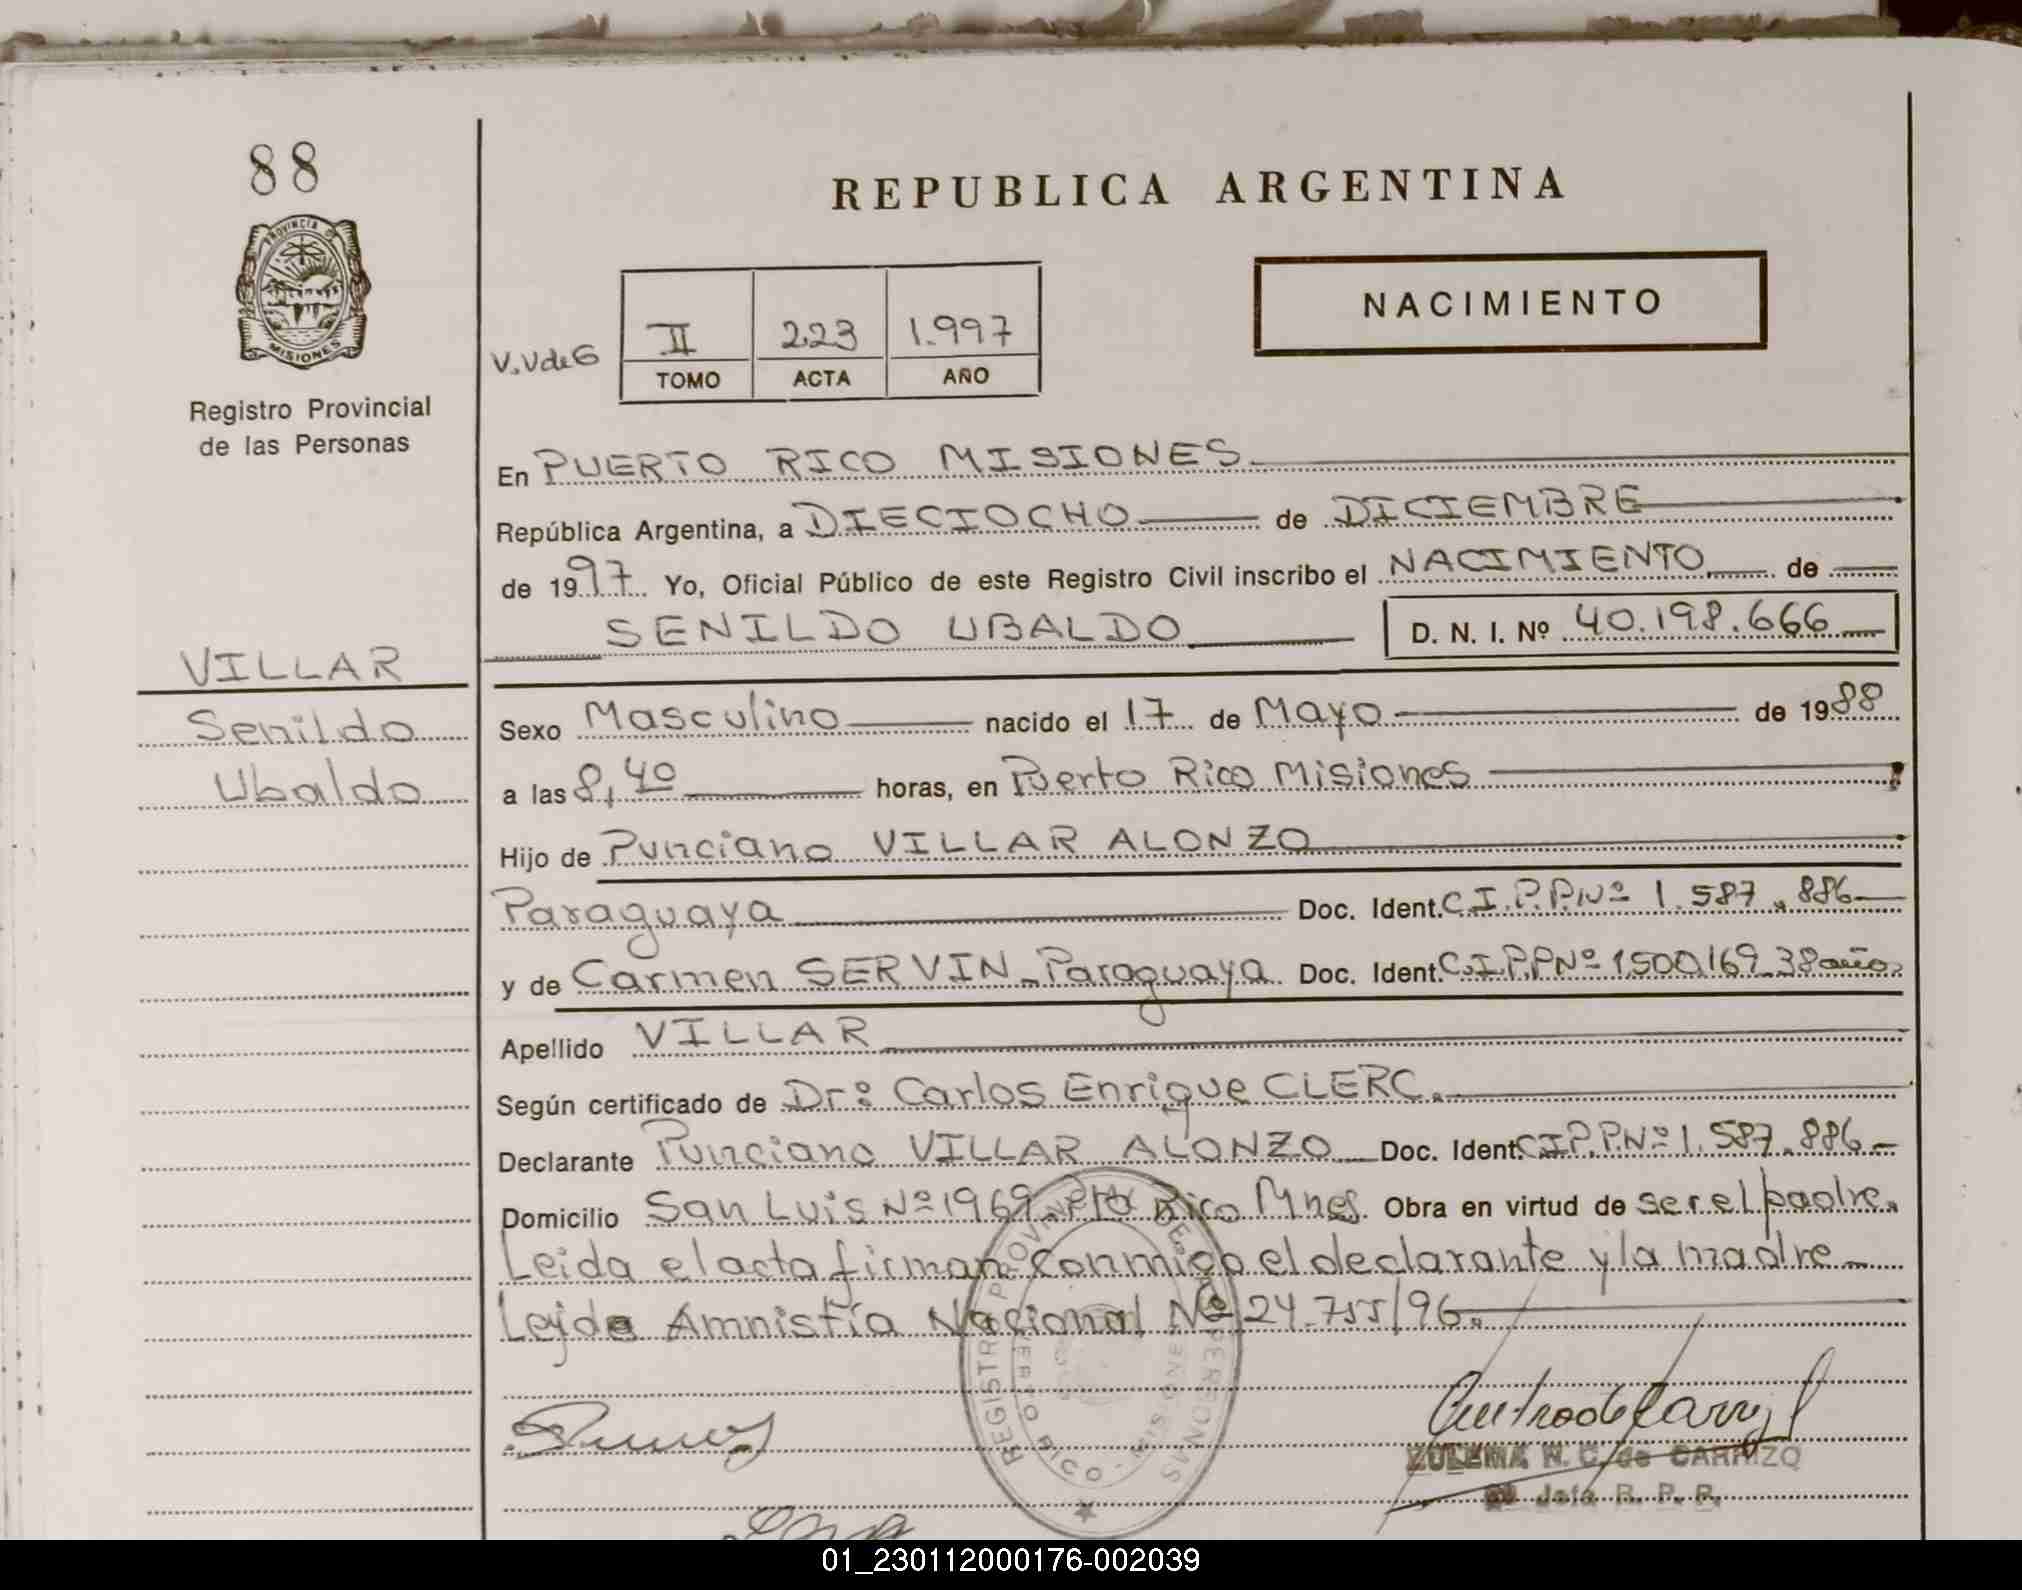 88
PROVINCIA DE
MISIONES
Registro Provincial
de las Personas
REPUBLICA ARGENTINA
NACIMIENTO
V.VdeG
II 223 1.997
TOMO ACTA AÑO
En PUERTO RICO MISIONES
República Argentina, a DIECIOCHO de DICIEMBRE
de 1997 Yo, Oficial Público de este Registro Civil inscribo el NACIMIENTO de
SENILDO UBALDO D. N. I. Nº 40.198.666
VILLAR
Senildo
Ubaldo
Sexo Masculino nacido el 17 de Mayo de 1988
a las 8,40 horas, en Puerto Rico Misiones
Hijo de Punciano VILLAR ALONZO
Paraguaya Doc. Ident. C.I.P.P.Nº 1.587.886
y de Carmen SERVIN - Paraguaya Doc. Ident. C.I.P.P Nº 1500169 38 años
Apellido VILLAR
Según certificado de Dr: Carlos Enrique CLERC.
Declarante Punciano VILLAR ALONZO Doc. Ident. C.I.P.P.Nº 1.587.886
Domicilio San Luis Nº 1969 Pto Rico Mnes. Obra en virtud de ser el padre.
Leida el acta firman conmigo el declarante y la madre
Leyde Amnistía Nacional Nº 24.755/96.
REGISTRO PROVINCIAL DE LAS PERSONAS
PUERTO RICO - MISIONES
ZULEMA N. C. de CARRIZO
Jefa R. P. P.
01_230112000176-002039